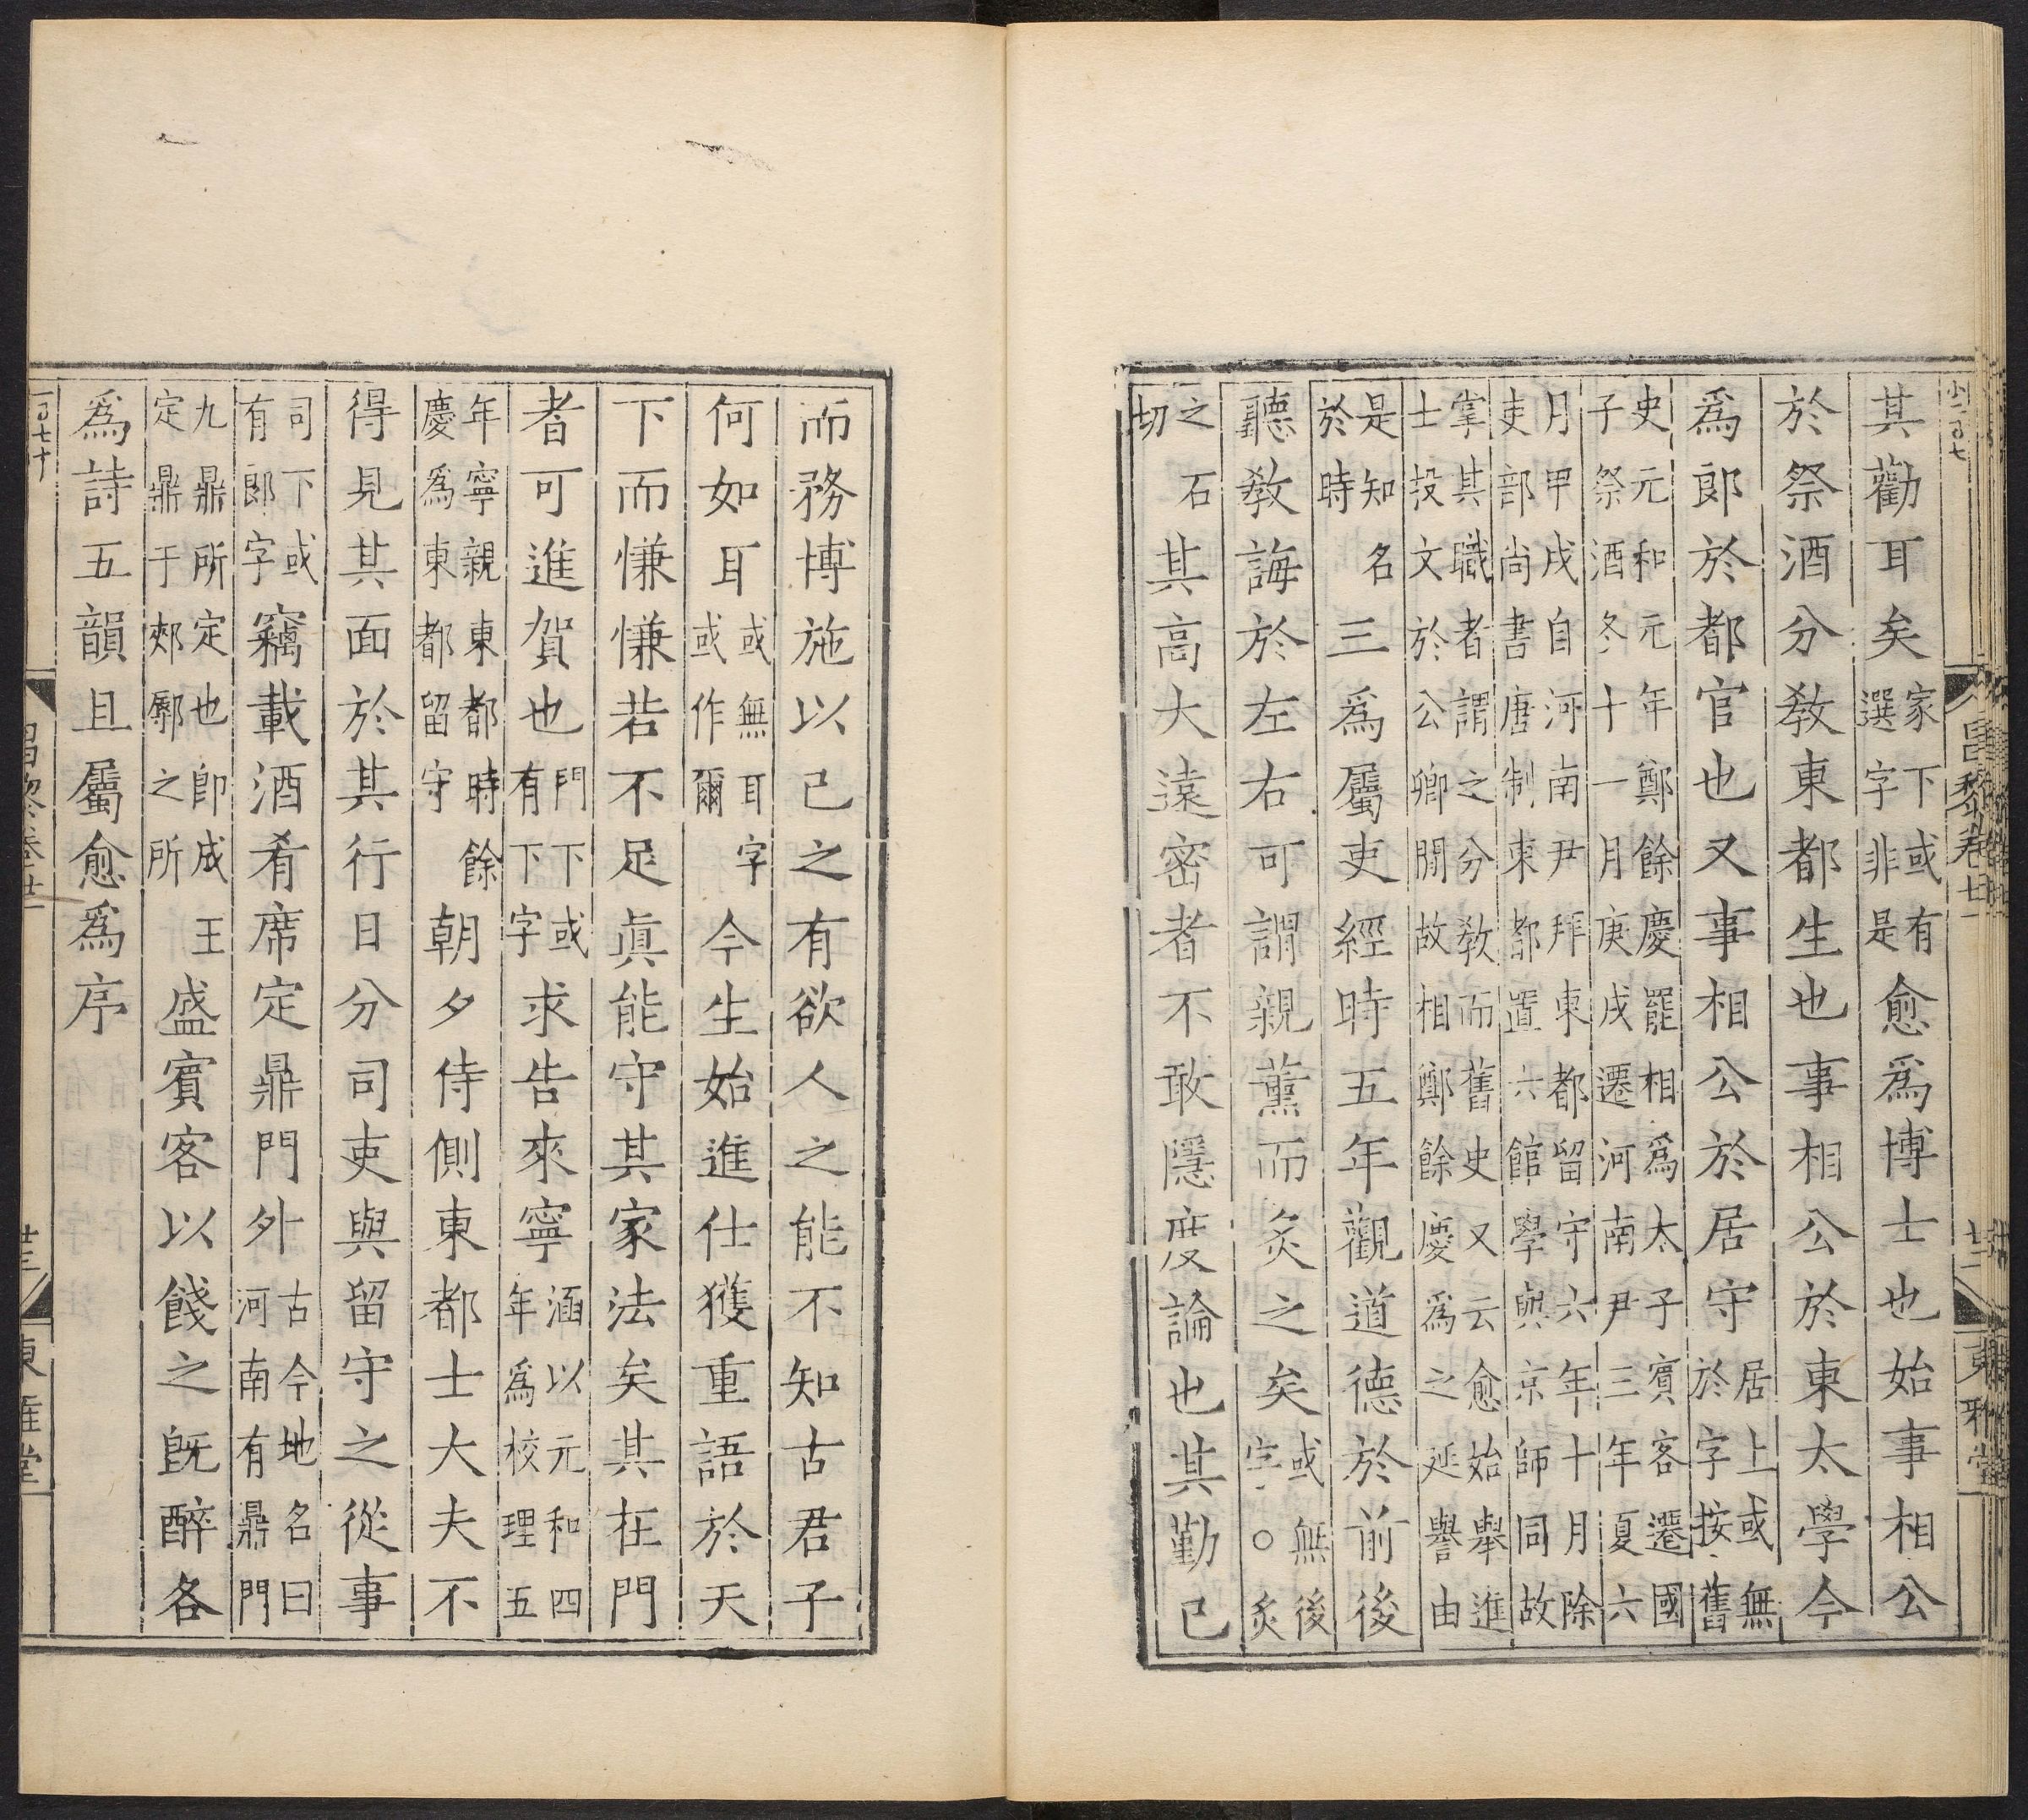 其勸耳矣家下或有選字非是愈爲博士也始事相公
於祭酒分敎東都生也事相公於東太學今
爲郎於都官也又事相公於居守居上或無於字按舊
史元和元年鄭餘慶罷相爲太子賓客遷國子祭酒冬十一月庚戌遷河南尹三年夏六
月甲戌自河南尹拜東都留守六年十月除吏部尚書唐制東都置六館學與京師同故
掌其職者謂之分敎而舊史又云愈始舉進士投文於公卿間故相鄭餘慶爲之延譽由
是知名於時三爲屬吏經時五年觀道德於前後
聽敎誨於左右可謂親薰而炙之矣或無後字○炙
之石切其高大遠密者不敢隱度論也其勤己
昌黎卷廿一
東雅堂
而務博施以已之有欲人之能不知古君子
何如耳或無耳字或作爾今生始進仕獲重語於天
下而慊慊若不足眞能守其家法矣其在門
者可進賀也門下或有下下字求告來寧涵以元和四年爲校理五
年寧親東都時餘慶爲東都留守朝夕侍側東都士大夫不
得見其面於其行日分司吏與留守之從事
司下或有郎字竊載酒肴席定鼎門外古今地名曰河南有鼎門
九鼎所定也卽成王定鼎于郟鄏之所盛賓客以餞之旣醉各
爲詩五韻且屬愈爲序
昌黎卷廿一
東雅堂